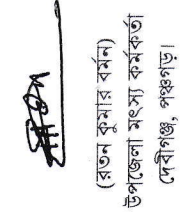 (রতন কুমার বর্মন)
উপজেলা মৎস্য কর্মকর্তা
দেবীগঞ্জ, পঞ্চগড়।